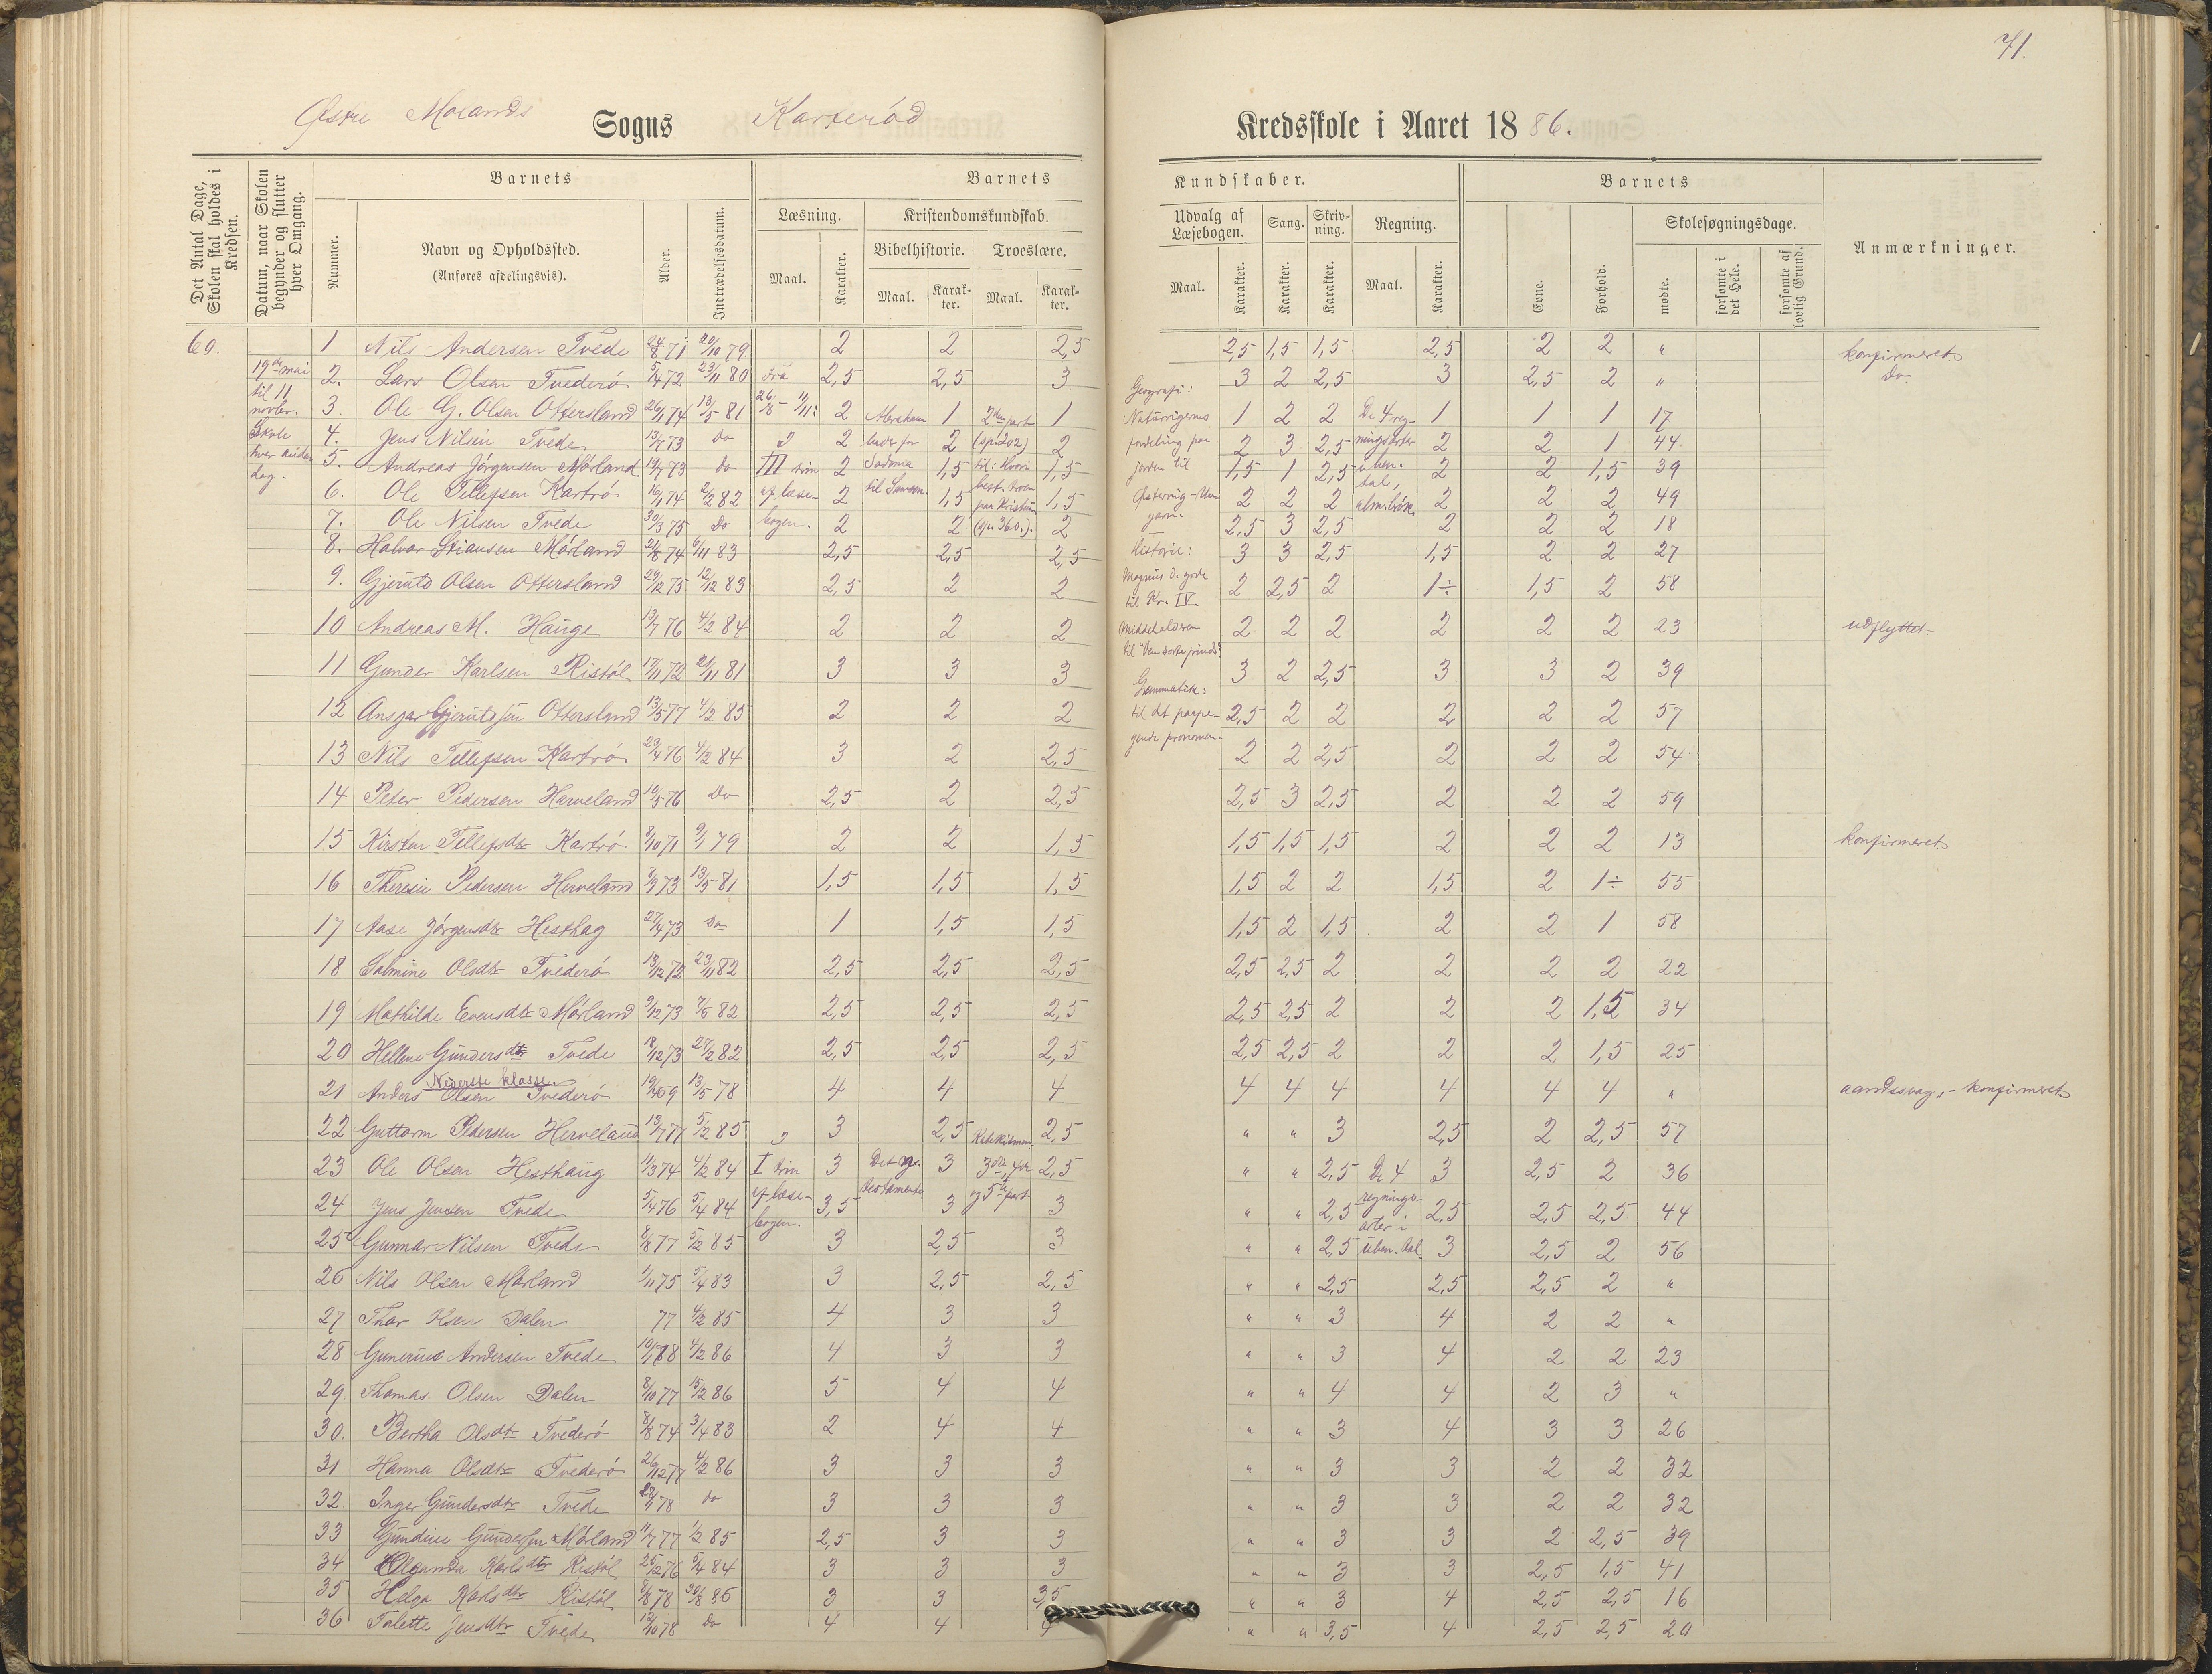 71.
Østre Molands Sogns Karterød Kredsskole i Aaret 1886.
Det Antal Dage, Skolen skal holdes i Kredsen.
Datum, naar Skolen begynder og slutter hver Omgang.
Barnets
Nummer.
Navn og Opholdssted.
(Anføres afdelingsvis).
Alder.
Indtrædelsesdatum.
Barnets Kundskaber.
Læsning.
Maal.
Karakter.
Kristendomskundskab.
Bibelhistorie.
Maal.
Karakter.
Troeslære.
Maal.
Karakter.
Udvalg af Læsebogen.
Maal.
Karakter.
Sang.
Karakter.
Skrivning.
Karakter.
Regning.
Maal.
Karakter.
Barnets
Evne.
Forhold.
Skolesøgningsdage.
mødte.
forsømte i det Hele.
forsømte af lovlig Grund.
Anmærkninger.
60.
19de mai
til 11
novbr.
Skole
hver anden
dag.
Fra
26/8 – 11/11:
III trin
af læse-
bogen.
Abraham
til Samson.
2den part
(sp. 202)
(sp. 360.).
Geografi:
Naturrigernes
fordeling paa
jorden til
Østerrig-Un
garn.
Historie:
Magnus d. gode
til Kr. IV
Middelalderen
til "Den sorte prinds".
Grammatik:
til det paape-
gende pronomen.
De 4 reg-
ningsarter
i ben.
tal,
alm. brøk.
1 Nils Andersen Tvede 24/8 71 20/10 79 2 2 2,5 2,5 1,5 1,5 2,5 2 2 " konfirmeret
2. Lars Olsen Tvederø 5/4 72 23/11 80 2,5 2,5 3 3 2 2,5 3 2,5 2 " Do
3. Ole G. Olsen Ottersland 26/1 74 13/5 81 2 1 1 1 2 2 1 1 1 17
4. Jens Nilsen Tvede 13/7 73 Do 2 2 2 2 3 2,5 2 2 1 44
5. Andreas Jørgensen Mørland 19/7 73 Do 2 1,5 1,5 1,5 1 2,5 2 2 1,5 39
6. Ole Tellefsen Kartrø 16/1 74 2/2 82 2 1,5 1,5 2 2 2 2 2 2 49
7. Ole Nilsen Tvede 30/3 75 Do 2 2 2 2,5 3 2,5 2 2 2 18
8. Halvor Stiansen Mørland 21/8 74 6/11 83 2,5 2,5 2,5 3 3 2,5 1,5 2 2 27
9. Gjeruld Olsen Ottersland 29/12 75 12/12 83 2,5 2 2 2 2,5 2 1÷ 1,5 2 58
10 Andreas M. Hauge 13/7 76 4/2 84 2 2 2 2 2 2 2 2 2 23 udflyttet
11 Gunder Karlsen Ristøl 17/11 72 21/11 81 3 3 3 3 2 2,5 3 3 2 39
12 Ansgar Gjeruldsen Ottersland 13/5 77 4/2 85 2 2 2 2,5 2 2 2 2 2 57
13 Nils Tellefsen Kartrø 29/4 76 4/2 84 3 2 2,5 2 2 2,5 2 2 2 54
14 Peter Pedersen Harveland 10/5 76 Do 2,5 2 2,5 2,5 3 2,5 2 2 2 59
15 Kirsten Tellefsdtr Kartrø 8/10 71 9/1 79 2 2 1,5 1,5 1,5 1,5 2 2 2 13 konfirmeret
16 Theresie Pedersen Herveland 8/9 73 13/5 81 1,5 1,5 1,5 1,5 2 2 1,5 2 1÷ 55
17 Aase Jørgensdtr Hesthag 27/4 73 Do 1 1,5 1,5 1,5 2 1,5 2 2 1 58
18 Salmine Olsdtr Tvederø 13/12 72 23/11 82 2,5 2,5 2,5 2,5 2,5 2 2 2 2 22
19 Mathilde Evensdtr Mørland 9/12 73 7/6 82 2,5 2,5 2,5 2,5 2,5 2 2 2 1,5 34
20 Hellene Gundersdtr Tvede 18/12 73 27/2 82 2,5 2,5 2,5 2,5 2,5 2 2 2 1,5 25
Nederste klasse.
21 Anders Olsen Tvederø 13/5 78 4 4 4 4 4 4 4 4 4 " aandssvag, – konfirmeret
22 Guttorm Pedersen Herveland 13/7 77 5/2 85 3 2,5 2,5 " " 3 2,5 2 2,5 57
I trin
af læse-
bogen.
Det
testamente
3die 4de
og 5te part
De 4
regnings-
arter i
uben. tal.
23 Ole Olsen Hesthaug 11/3 74 4/2 84 3 3 2,5 " " 2,5 3 2,5 2 36
24 Jens Jensen Tvede 5/4 76 5/4 84 3,5 3 3 " " 2,5 2,5 2,5 2,5 44
25 Gunnar Nilsen Tvede 8/8 77 5/2 85 3 2,5 3 " " 2,5 3 2,5 2 56
26 Nils Olsen Mørland 1/11 75 5/4 83 3 2,5 2,5 " " 2,5 2,5 2,5 2 "
27 Thor Olsen Dalen 77 4/2 85 4 3 3 " " 3 4 2 2 "
28 Gunerius Andersen Tvede 4/2 86 4 3 3 " " 3 4 2 2 23
29. Thomas Olsen Dalen 8/10 77 15/2 86 5 4 4 " " 4 4 2 3 "
30. Bertha Olsdtr Tvederø 8/8 74 3/4 83 2 4 4 " " 3 4 3 3 26
31 Hanna Olsdtr Tvederø 26/12 77 4/2 86 3 3 3 " " 3 3 2 2 32
32. Inger Gundersdtr Tvede 78 do 3 3 3 " " 3 3 2 2 32
33 Gundine Gundersen Mørland 11/7 77 1/2 85 2,5 3 3 " " 3 3 2 2,5 39
34 Olganda Karlsdtr Ristøl 25/12 76 5/4 84 3 3 3 " " 3 3 2,5 1,5 41
35 Helga Karlsdtr Ristøl 8/8 78 30/8 86 3 3 3,5 " " 3 4 2,5 2,5 16
36 Talette Jensdtr Tvede 12/10 78 Do 4 4 4 " " 3,5 4 2,5 2,5 20